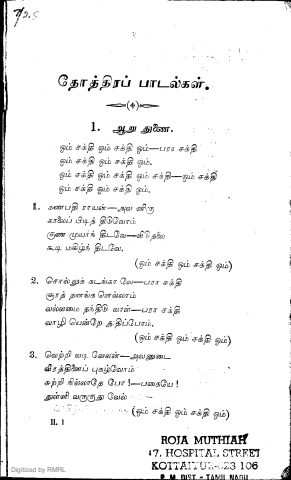 தோத்திரப் பாடல்கள்.
1. ஆறு துணை.
ஓம் சக்தி ஓம் சக்தி ஓம்—பரா சக்தி
ஓம் சக்தி ஓம் சக்தி ஓம்.
ஓம் சக்தி ஓம் சக்தி ஓம் சக்தி—ஓம் சக்தி
ஓம் சக்தி ஓம் சக்தி ஓம்.
1. கணபதி ராயன்—அவ னிரு
காலைப் பிடித் திடுவோம்
குண முயர்ந் திடவே—விடுதலை
கூடி மகிழ்ந் திடவே.
(ஓம் சக்தி ஓம் சக்தி ஓம்)
2. சொல்லுக் கடங்கா வே—பரா சக்தி
சூரத் தனங்க ளெல்லாம்
வல்லமை தந்திடு வாள்—பரா சக்தி
வாழி யென்றே துதிப்போம்.
(ஓம் சக்தி ஓம் சக்தி ஓம்)
3. வெற்றி வடி வேலன்—அவனுடை
வீரத்தினைப் புகழ்வோம்
சுற்றி நில்லாதே போ!—பகையே!
துள்ளி வருகுது வேல்
(ஓம் சக்தி ஓம் சக்தி ஓம்)
II. 1
ROJA MUTHIAH
17, HOSPITAL STREET
KOTTAIYUR-623 106
P. M. DIST - TAMIL NADU
Digitized by RMRL